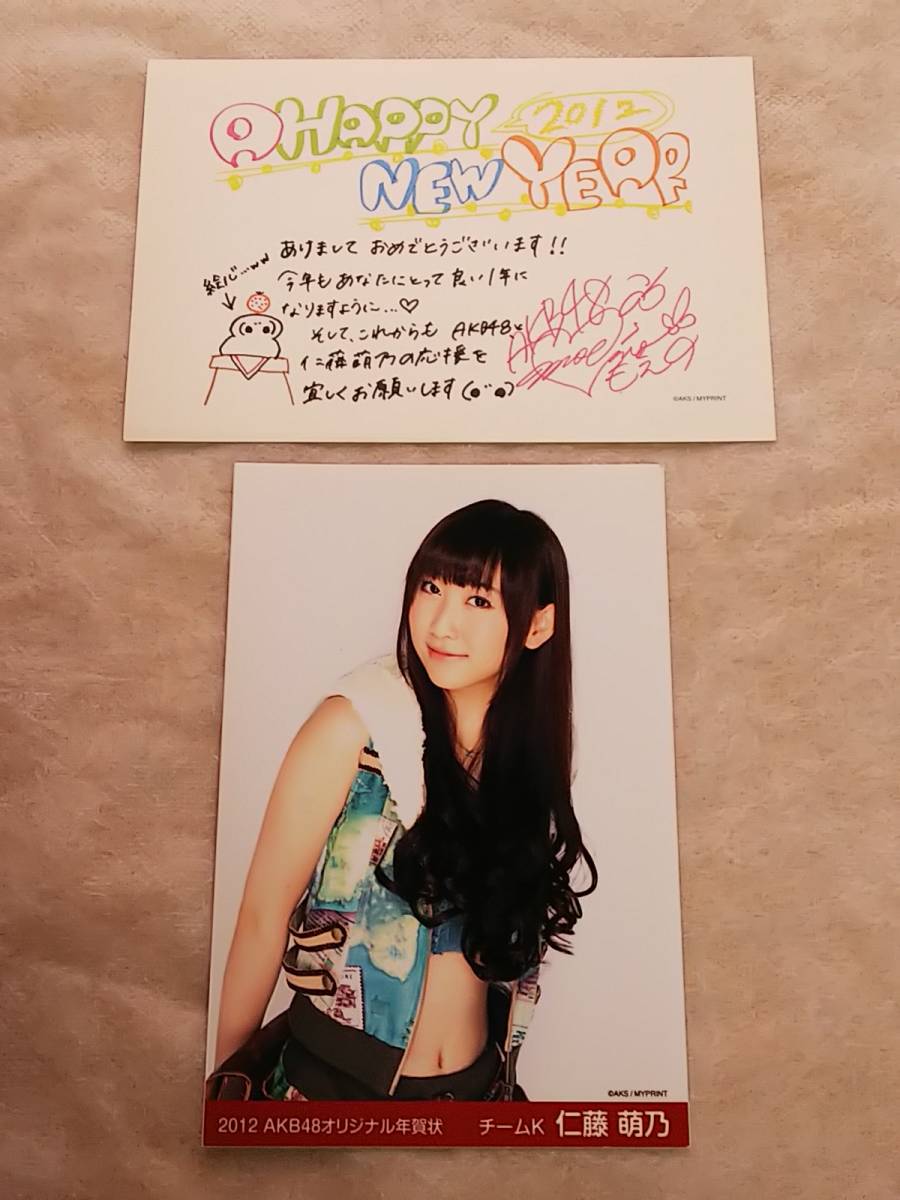 A HAPPY 2012
NEW YEAR
絵心...ww
あけまして おめでとうございます!!
今年もあなたにとって良い1年に
なりますように...♡
そして、これからも AKB48と
仁藤萌乃の応援を
宜しくお願いします
AKB48
©AKS / MYPRINT
©AKS / MYPRINT
2012 AKB48オリジナル年賀状 チームK 仁藤 萌乃